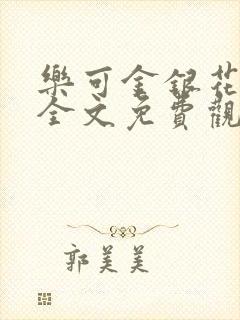 樂可金銀花
全文免費觀
郭美美